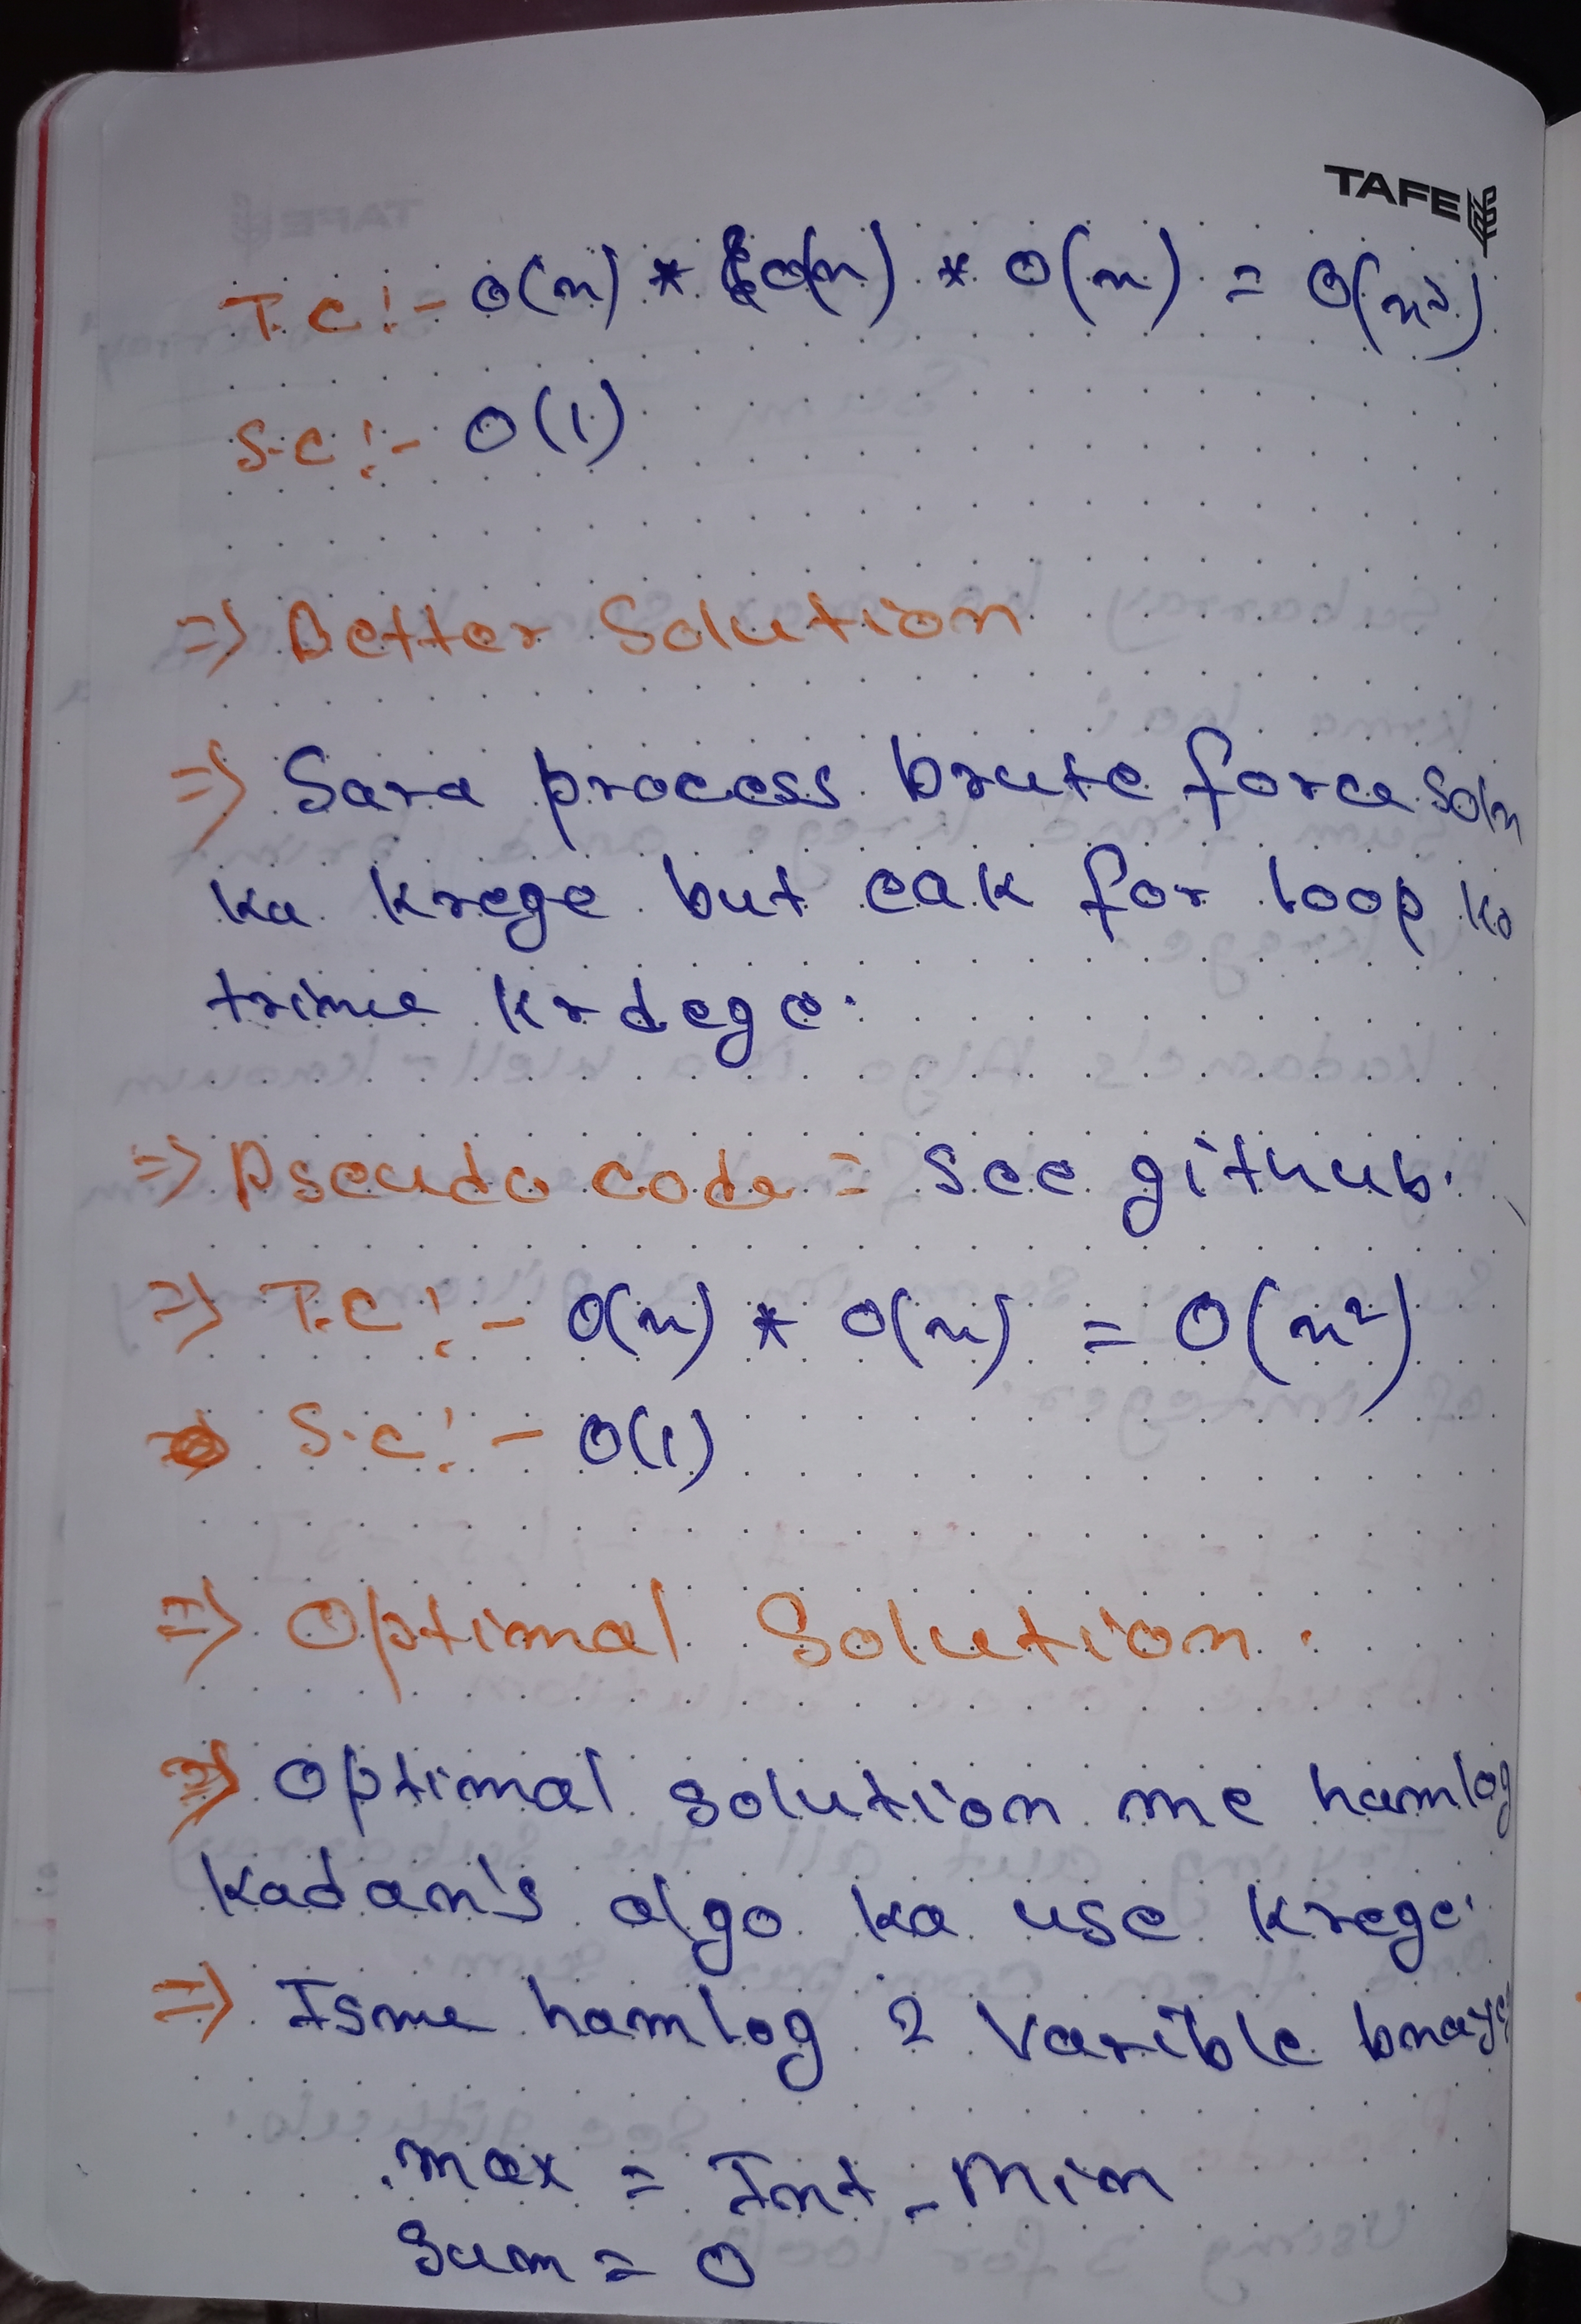 TAFE
T.C :- O(n) * O(n) * O(n) = O(n³)
S.C :- O(1)
=> Better Solution
=> Sara process brute force soln
ka krege but eak for loop ko
trime krdege.
=> Pseudo code = see github.
=> T.C :- O(n) * O(n) = O(n²)
S.C :- O(1)
=> Optimal Solution.
=> Optimal solution me hamlog
Kadan's algo ka use krege.
=> Isme hamlog 2 varible
max = Int_Min
Sum = 0